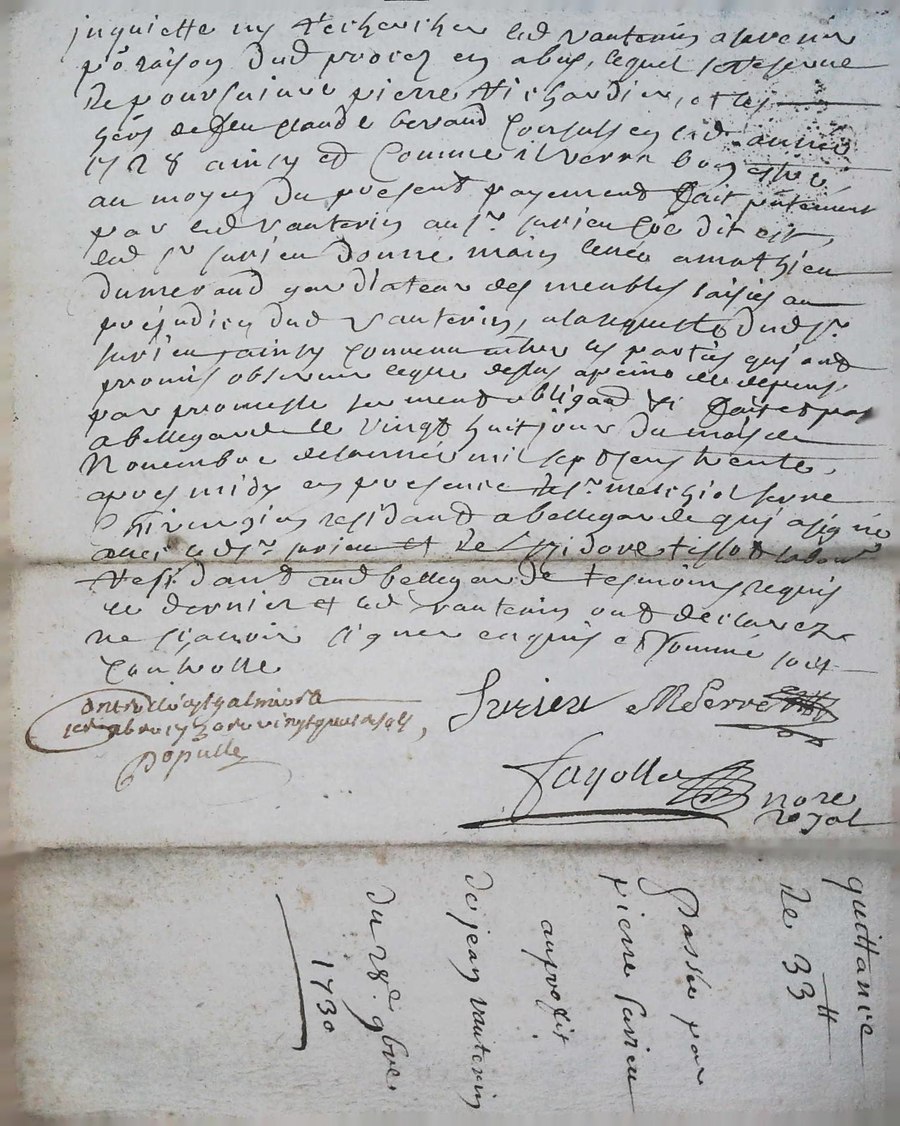 inquietté ny rechercher led vauterin a lavenir
p̃ raison dud procez en abus, lequel se reserve
de poursuivre pierre richardier, et les
hers de feu claude beraud consulz en lad année
1728 ainsy et comme il verra bon estre
au moyen du present payement fait p̃ntement
par led vauterin au sr. surieu coe dit est,
led sr surieu donne main levée a mathieu
dumerand gardiateur des meubles saisies au
prejudice dud vauterin, a la requeste dud sr.
surieu, ainsy convenu entre les parties qui ont
promis observer ce que dessus a peine de depens,
par promesse serment obligaõn &c fait et passé
a bellegarde le vingt huit jour du mois de
Novembre de lannée mil sept cens trente,
apres midy en presence de sr. melchiol serre
Chirurgien residant a bellegarde qui a signé
avec led sr. surieu et de izidore tissot labour
residant aud bellegarde tesmoins requis
ce dernier et led vauterin ont declarez
ne sçavoir signer enquis et sommé soit
controllé
Controllé a st galmier le
9bre 1730 vingt
Populle
Surieu MSerre
Fayolle nore
royal
quittance
de 33 ₶
passée par
pierre surieu
au profit
de jean vauterin
du 28e. 9bre
1730